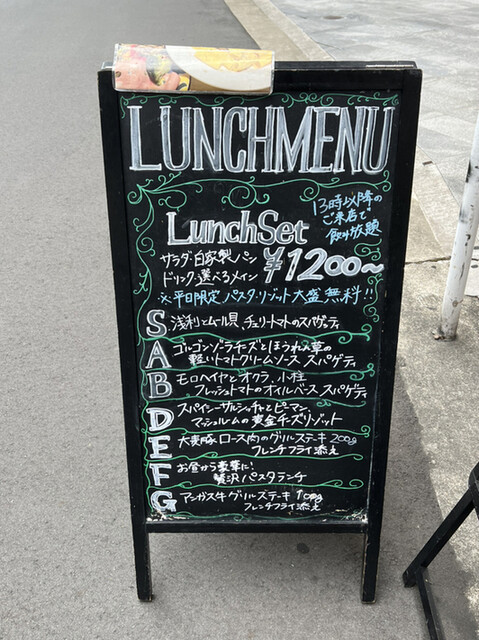 LUNCHMENU
Lunch Set
13時以降の
ご来店で
飲み放題
サラダ・自家製パン
ドリンク・選べるメイン
¥1200~
※平日限定 パスタ・リゾット大盛無料!!
S 浅利とムール貝 チェリートマトのスパゲティ
A ゴルゴンゾーラチーズとほうれん草の
軽いトマトクリームソース スパゲティ
B モロヘイヤとオクラ、小柱
フレッシュトマトのオイルベース スパゲティ
D スパイシーサルシッチャとピーマン、
マッシュルームの黄金チーズリゾット
E 大麦豚ロース肉のグリルステーキ 200g
フレンチフライ添え
F お昼から豪華に!
贅沢パスタランチ
G アンガス牛グリルステーキ 100g
フレンチフライ添え